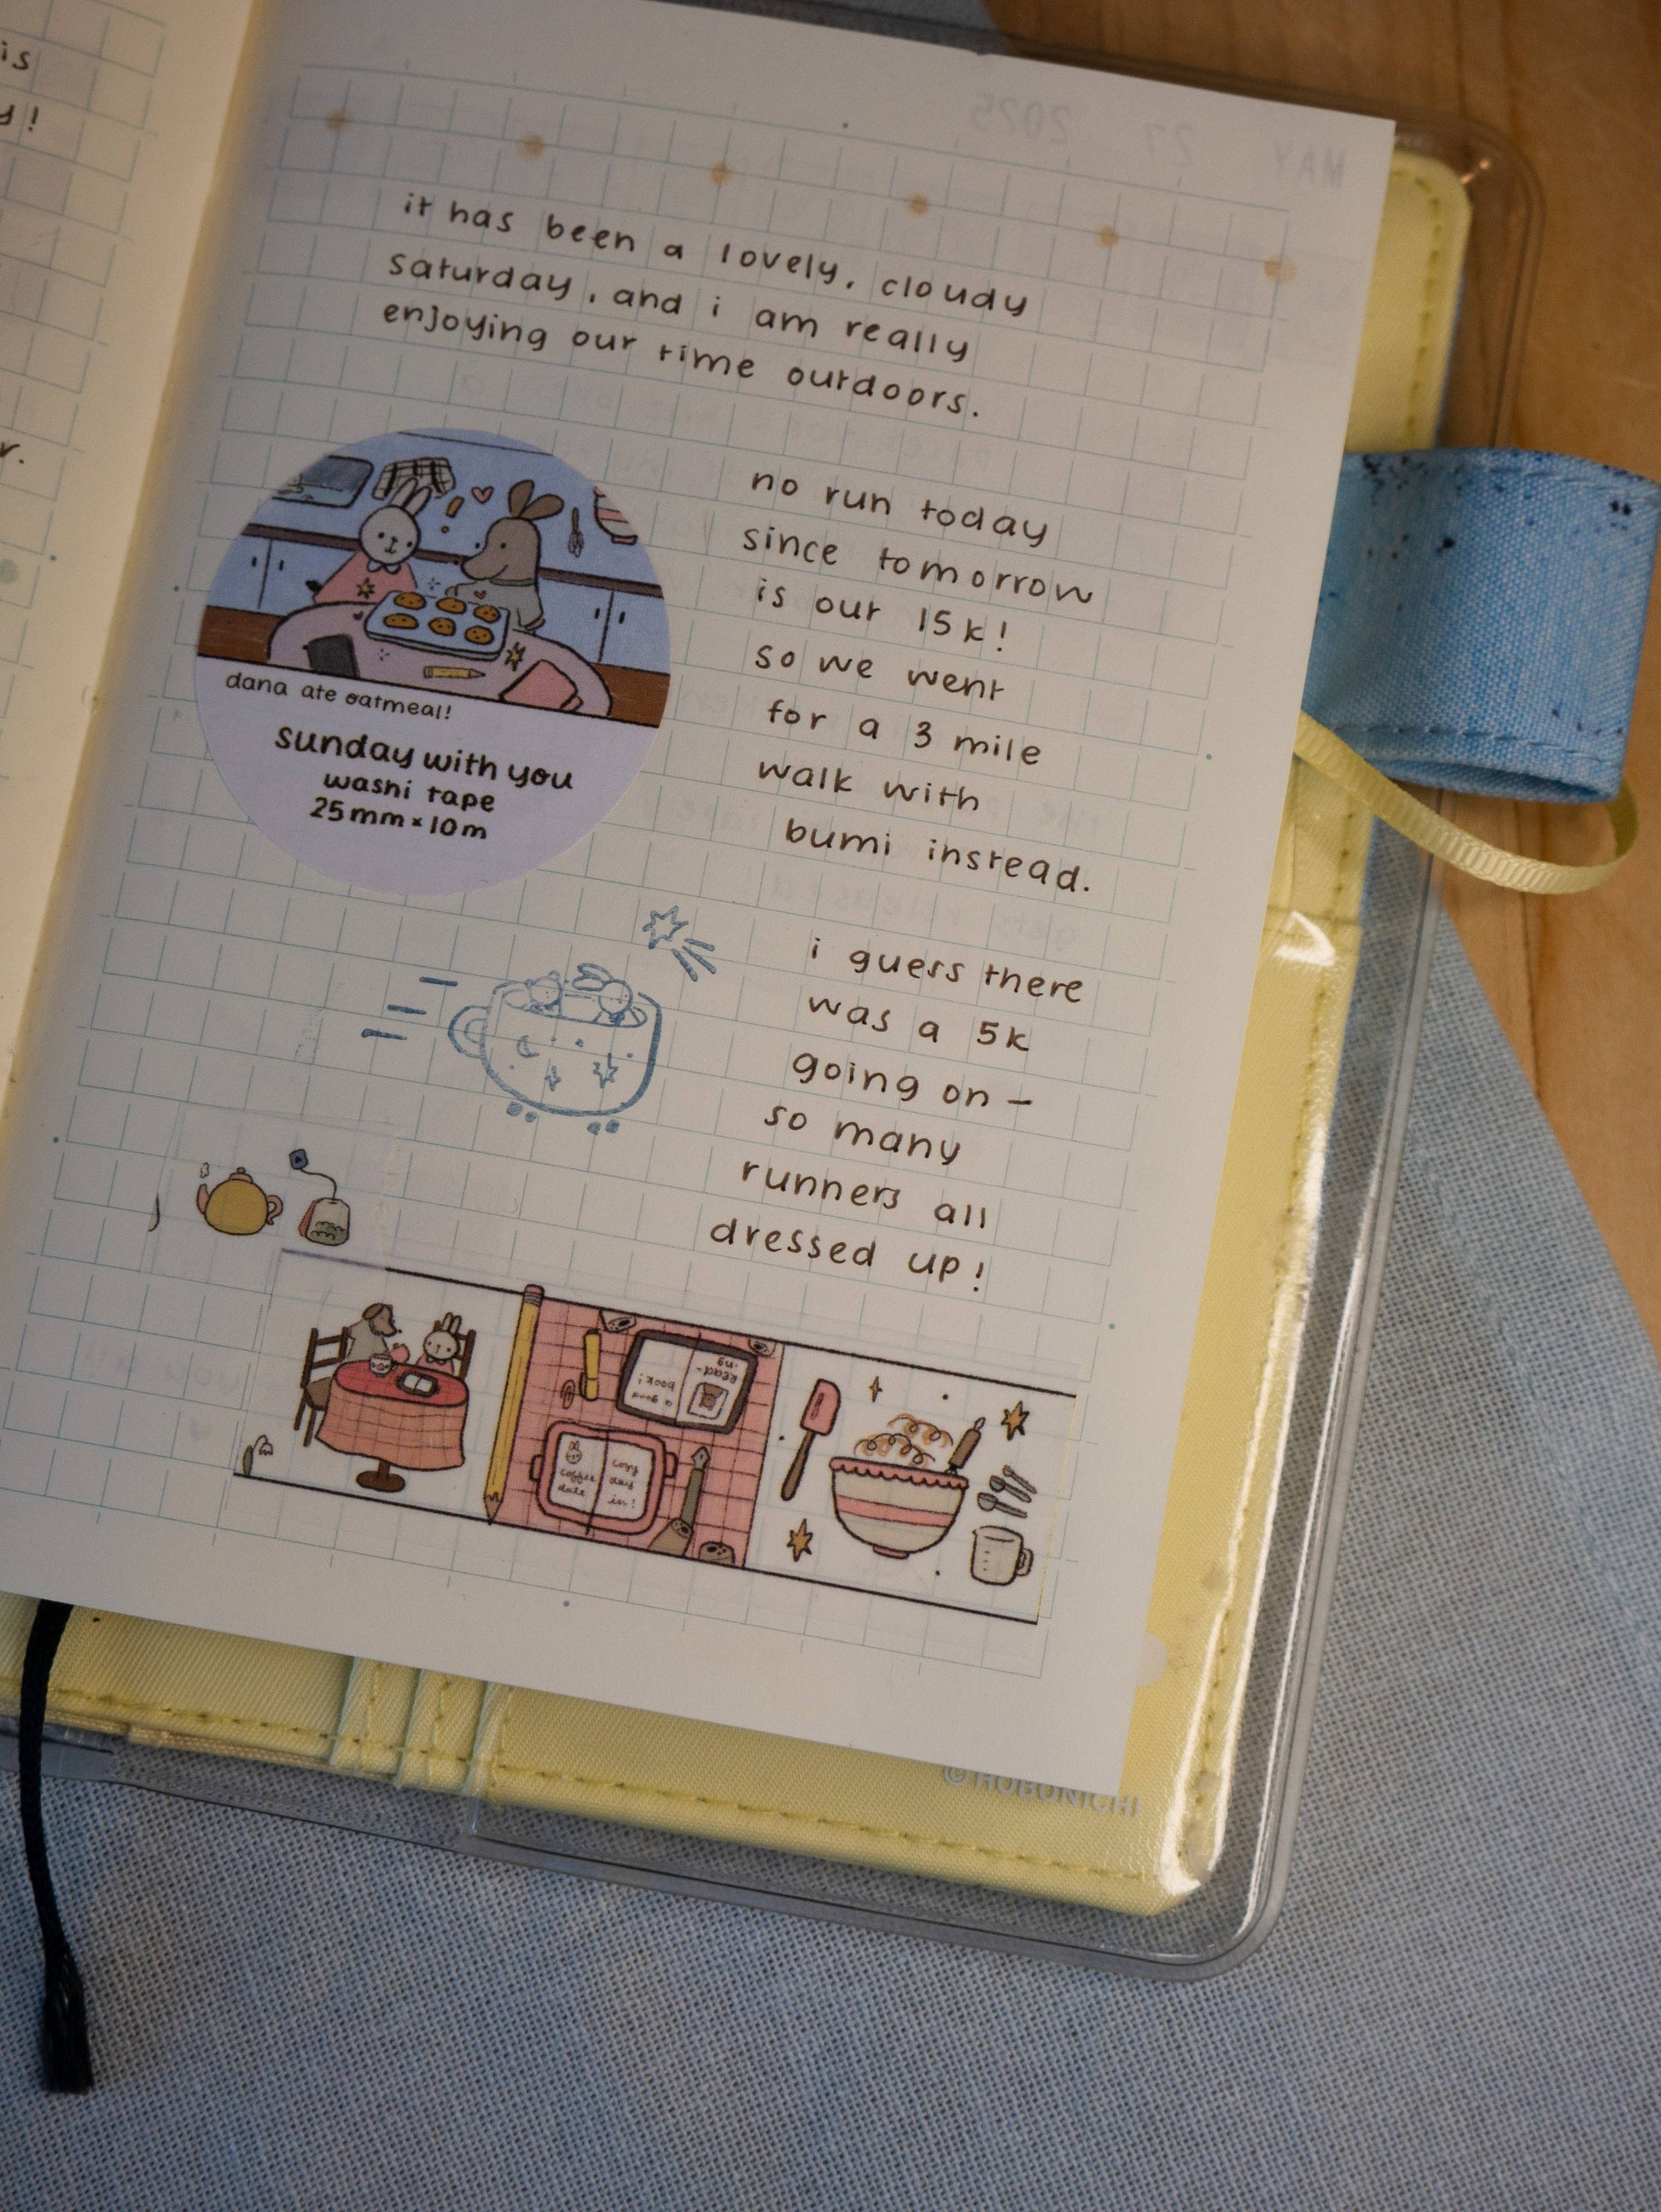 is
y!
r.
MAY 27 2025
it has been a lovely, cloudy
saturday, and i am really
enjoying our time outdoors.
no run today
since tomorrow
is our 15k!
so we went
for a 3 mile
walk with
bumi instead.
dana ate oatmeal!
sunday with you
washi tape
25mm × 10m
i guess there
was a 5k
going on –
so many
runners all
dressed up!
a good
book!
Read-
ing
coffee
date
cozy
day
in!
© HOBONICHI